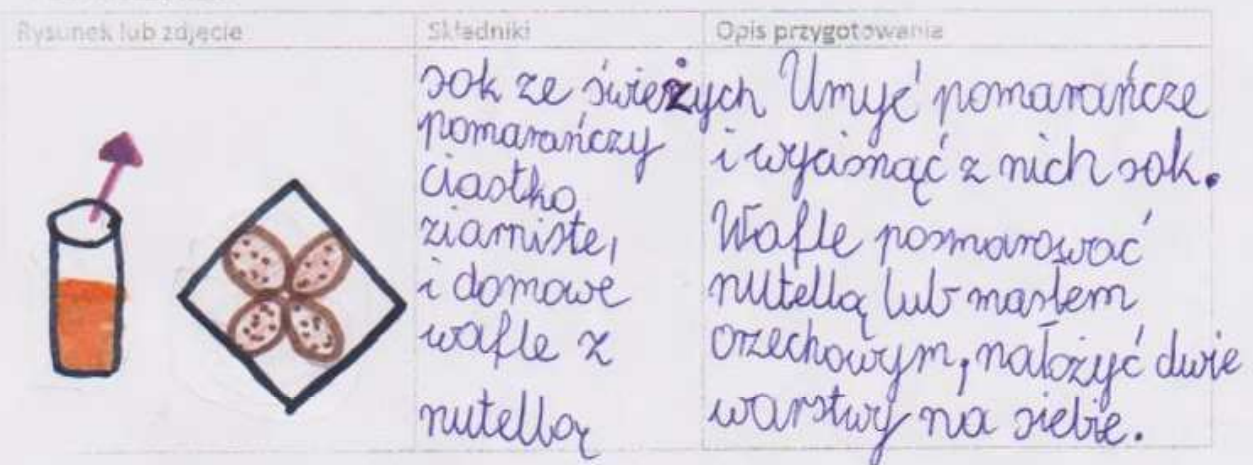 Rysunek lub zdjęcie
Składniki
Opis przygotowania
sok ze świeżych
pomarańczy
ciastko
ziarniste,
i domowe
wafle z
nutellą
Umyć pomarańcze
i wycisnąć z nich sok.
Wafle posmarować
nutellą lub masłem
orzechowym, nałożyć dwie
warstwy na siebie.